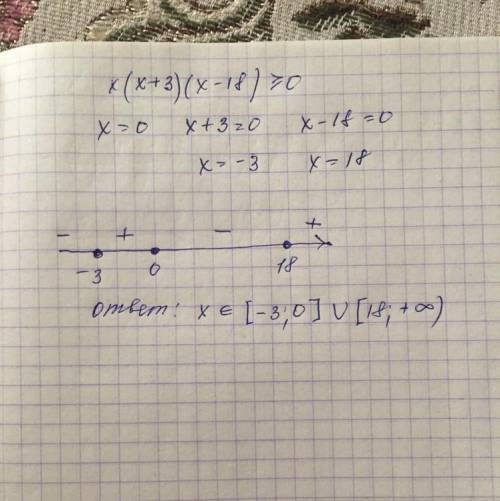 x(x+3)(x-18) ≥ 0
x=0 x+3=0 x-18=0
x=-3 x=18
- + - +
-3 0 18
Ответ: x ∈ [-3;0] ∪ [18; +∞)